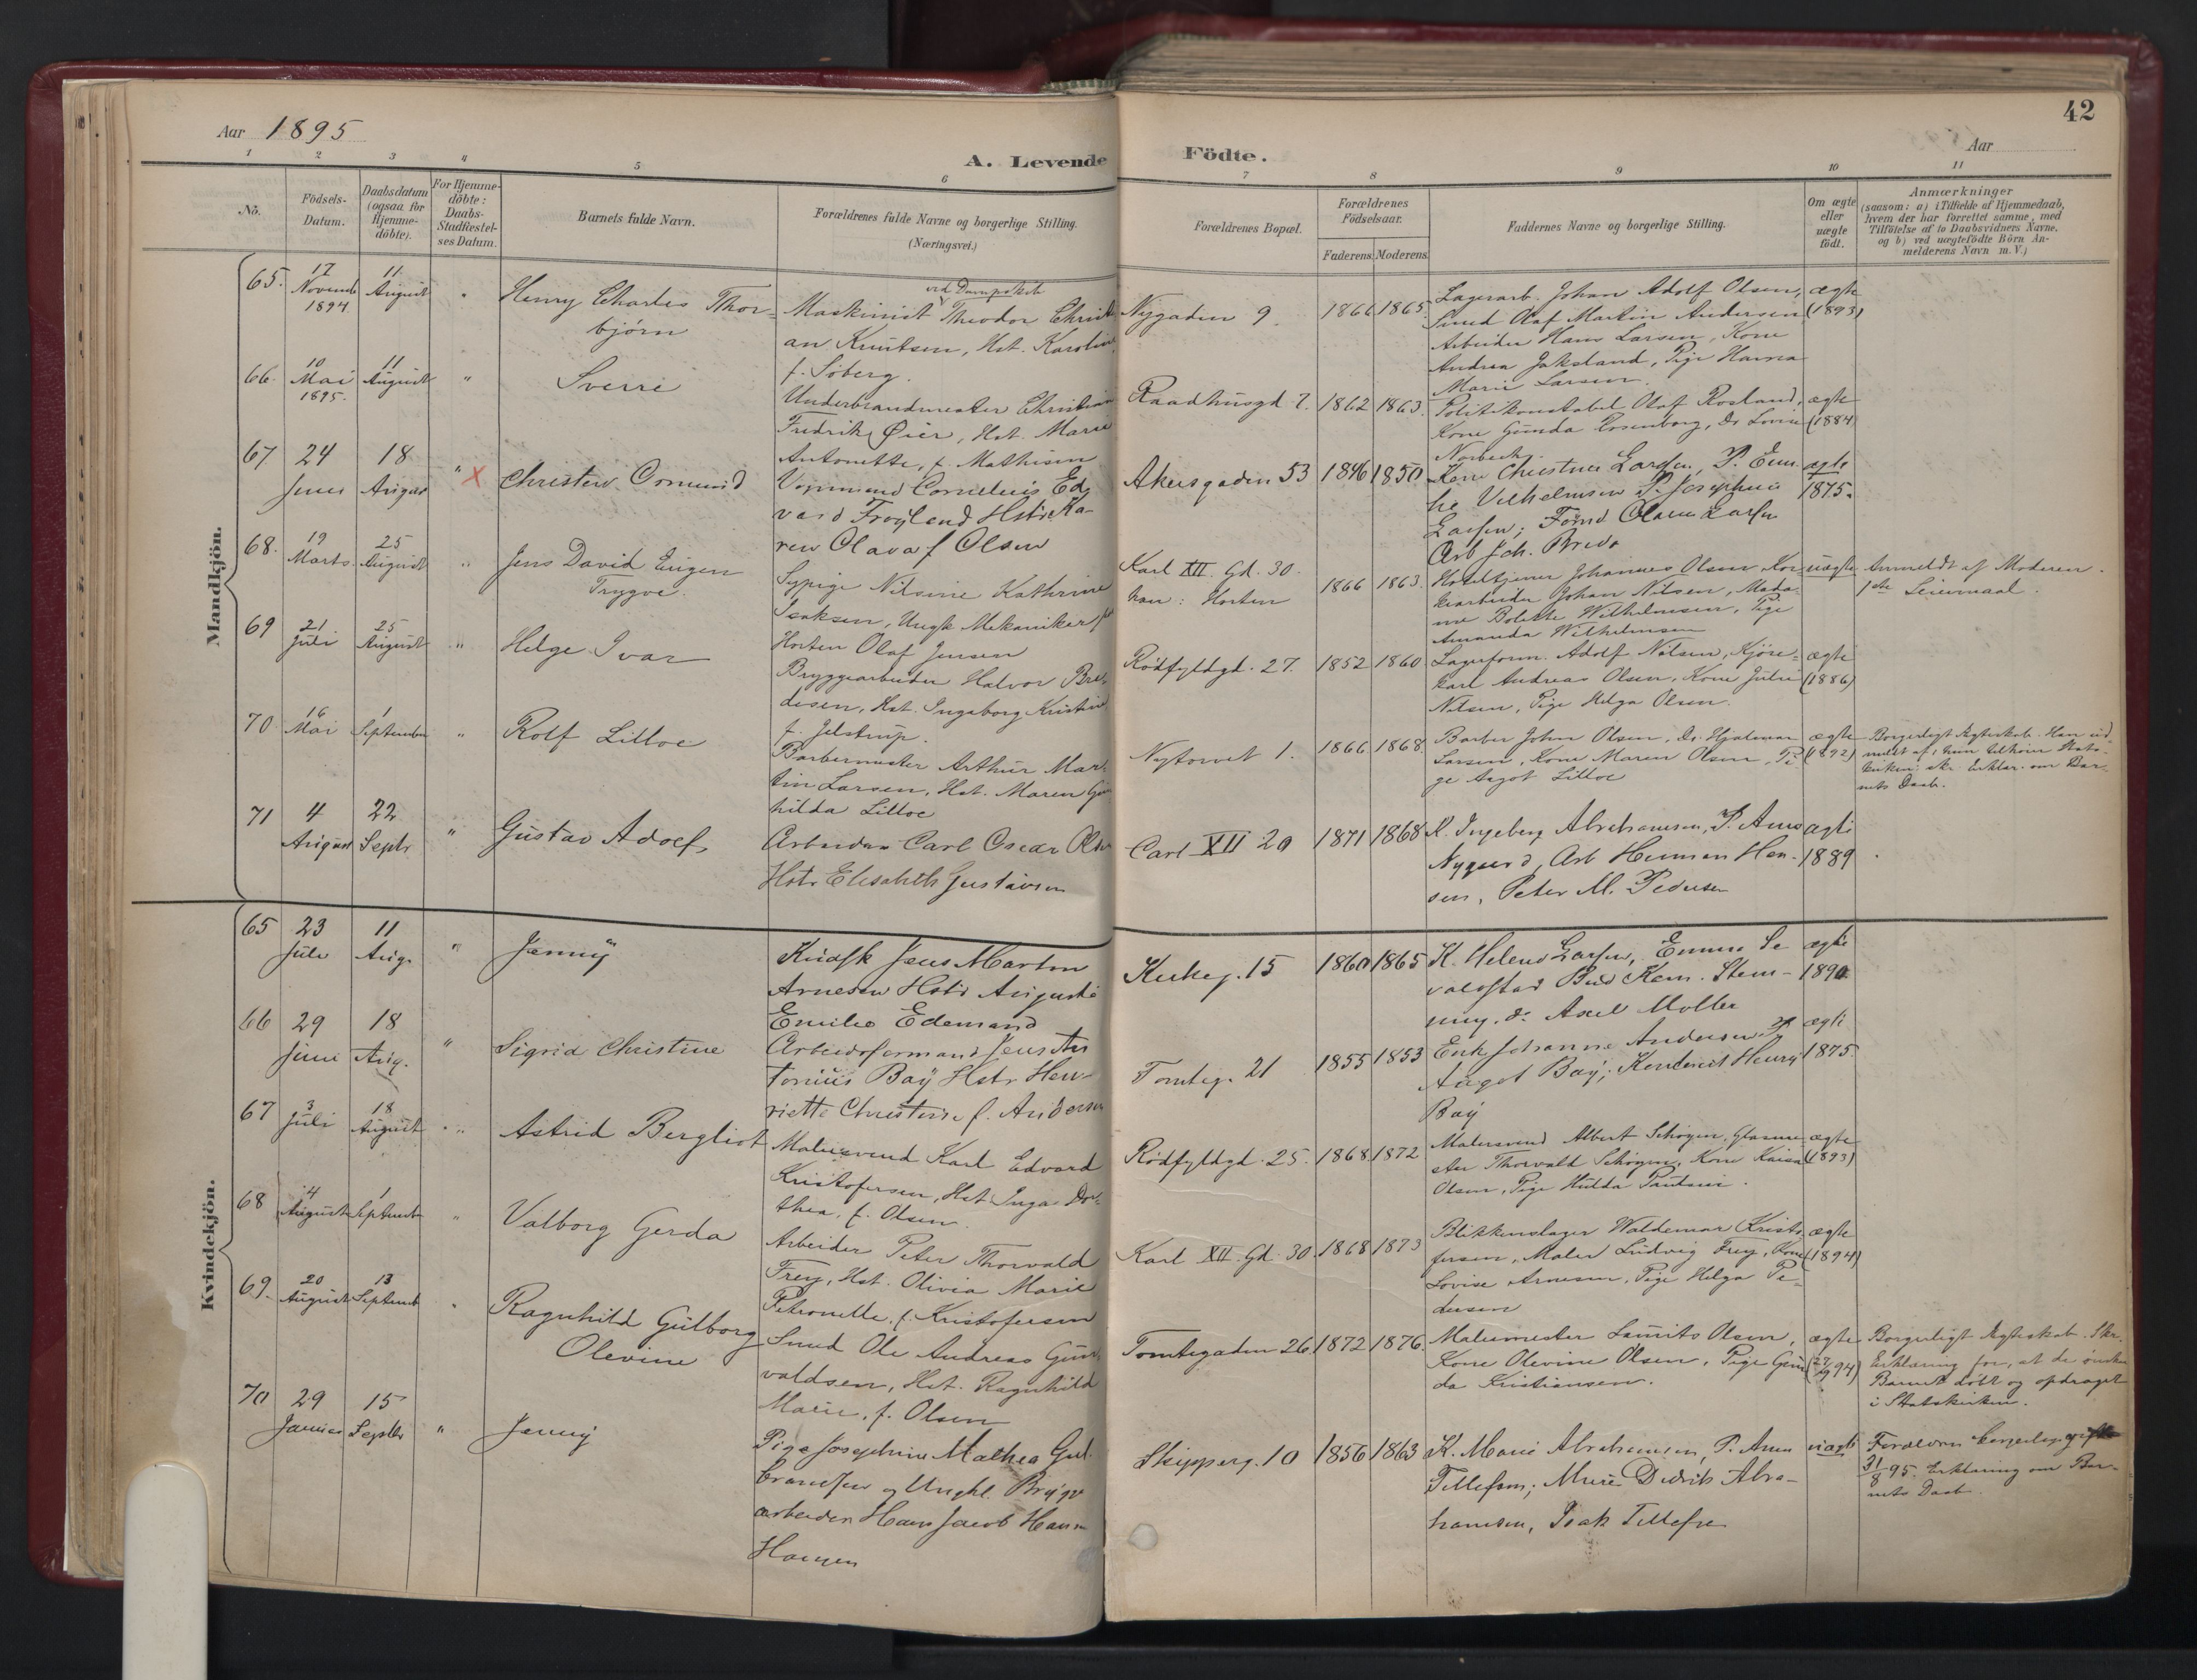 Aar 1895
A. Levende
1 2 3 4 5 6
No.
Födsels-
Datum.
Daabsdatum
(ogsaa for
Hjemme-
döbte).
For Hjemme-
döbte:
Daabs-
Stadfæstel-
ses Datum.
Barnets fulde Navn.
Forældrenes fulde Navne og borgerlige Stilling.
(Næringsvei.)
Mandkjön.
65. 17 Novemb 1894. 11 August " Henry Charles Thor-
bjørn
ved Dampskib
Maskinist Theodor Christi
an Knutsen, Hst. Karoline
f. Söberg.
66. 10 Mai 1895. 11 August " Sverre
Underbrandmester Christian
Fredrik Øier, Hst. Marie
Antonette, f. Mathisen
67 24 Juni 18 August " X Christew Ormund
Vognmand Cornelius Ed-
vard Frogland Hstr Ka-
ren Olava f Olsen
68. 19 Marts 25 August " Jens David Eugen
Trygve.
Sypige Nilsine Kathrine
Isaksen, Ungk Mekaniker fra
Horten Olaf Jensen
69 21 Juli 25 August " Helge Ivar
Bryggearbeider Halvor Bre-
desen, Hst. Ingeborg Kristine
f. Jelstrup.
70. 16 Mai 1 September " Rolf Lilloe
Barbermester Arthur Mar-
tin Larsen, Hst. Maren Gun
hilda Lilloe
71 4 August 22 Septr " Gustav Adolf
Arbeider Carl Oscar Olsen
Hstr Elisabeth Gustavsen
Kvindekjön.
65 23 Juli 11 Aug. " Jenny
Kudsk Jens Marton
Arnesen Hstr Auguste
Emilie Edemand
66 29 Juni 18 Aug. " Sigrid Christine
Arbeidsformand Jens An
tonius Baÿ Hstr Hen-
riette Christine f. Andersen
67 3 Juli 18 August " Astrid Bergliot
Malersvend Karl Edvard
Kristofersen, Hst. Inga Dor-
thea, f. Olsen.
68 4 August 1 Septemb " Valborg Gerda
Arbeider Peter Thorvald
Frey, Hst. Olivia Marie
Petronelle, f. Kristofersen
69. 20 August 13 Septemb " Ragnhild Gulborg
Olevine
Smed Ole Andreas Gun-
valdsen, Hst. Ragnhild
Marie, f. Olsen
70 29 Januar 15 Septbr " Jenny
Pige Josephine Mathea Gul
brandsen og Ungkl. Brygge
arbeider Hans Jacob
Hansen
42
Födte.
Aar
7 8 9 10 11
Forældrenes Bopæl.
Forældrenes
Födselsaar.
Faderens. Moderens.
Faddernes Navne og borgerlige Stilling.
Om ægte
eller
uægte
födt.
Anmærkninger
(saasom: a) i Tilfælde af Hjemmedaab,
hvem der har forrettet samme, med
Tilföielse af to Daabsvidners Navne,
og b) ved uægtefödte Börn An-
melderens Navn m. V.)
Nygaden 9. 1866 1865. Lagerarb. Johan Adolf Olsen, ægte
Smed Olaf Martin Andersen (1893)
Arbeider Hans Larsen, Kone
Andrea Jaksland, Pige Hanna
Marie Larsen.
Raadhusgd. 7. 1862 1863. Politikonstabel Olaf Rosland, ægte
Kone Gunda Rosenborg, Do Lovise (1884)
Norbech.
Akersgaden 53 1846 1850 Kone Christine Larsen, P. Em- ægte
lie Vilhelmsen P. Josephine 1875.
Larsen; Formd Olaus Larsen
Arb Joh. Brede
Karl XII. Gd. 30.
han: Horten 1866 1863. Hoteltjener Johannes Olsen Kor- uægte Anmeldt af Moderen.
kearbeider Johan Nilsen, Mada- 1ste Leiermaal.
me Bolette Wilhelmsen, Pige
Amanda Wilhelmsen
Rødfyldgd. 27. 1852 1860 Lagerform. Adolf Nilsen, Kjøre- ægte
karl Andreas Olsen, Kone Julie (1886)
Nilsen, Pige Helga Olsen.
Nytorvet 1. 1866 1868. Barber John Olsen, Do Hjalmar ægte Borgerligt Ægteskab. Han ud
Larsen, Kone Maren Olsen, Pi- (1892) meldt af, hun tilhører Stats-
ge Aagot Lilloe kirken: skr. Erklær. om Bar-
nets Daab.
Carl XII 20 1871 1868 K. Ingeborg Abrahamsen, P. Anna ægte
Nygaard, Arb Herman Han- 1889
sen, Peter M. Pedersen
Kirkeg. 15 1860 1865 K. Helene Larsen, Emma Se ægte
valstad Bud Kem. Stem- 1890
ning. do Axel Moller
Tomteg. 21 1855 1853 Enk Johanne Andersen P. ægte
Aagot Baÿ; Kontorist Henry 1875.
Baÿ
Rødfyldgd. 25. 1868. 1872 Malersvend Albert Schøyen, Glasme- ægte
ster Thorvald Schøyen, Kone Kaisa (1893)
Olsen, Pige Hulda Paulsen.
Karl XII. Gd. 30. 1868 1873 Blikkenslager Waldemar Kristo ægte
fersen, Maler Ludvig Frey, Kone (1894)
Lovise Arnesen, Pige Helga Pe-
dersen
Tomtegaden 26 1872 1876. Malermester Laurits Olsen, ægte Borgerligt Ægteskab. Skr.
Kone Olevine Olsen, Pige Gun (27/9 94) Erklæring for, at de ønske
da Kristiansen. Barnet døbt og opdraget
i Statskirken.
Skipperg. 10 1856 1863 K. Marie Abrahamsen, P. Anna uægte Forældrene borgerlig gifte
Tellefsen; Murer Didrik Abra- 31/8 95. Erklæring om Bar-
hamsen, Isak Tellefsen nets Daab.